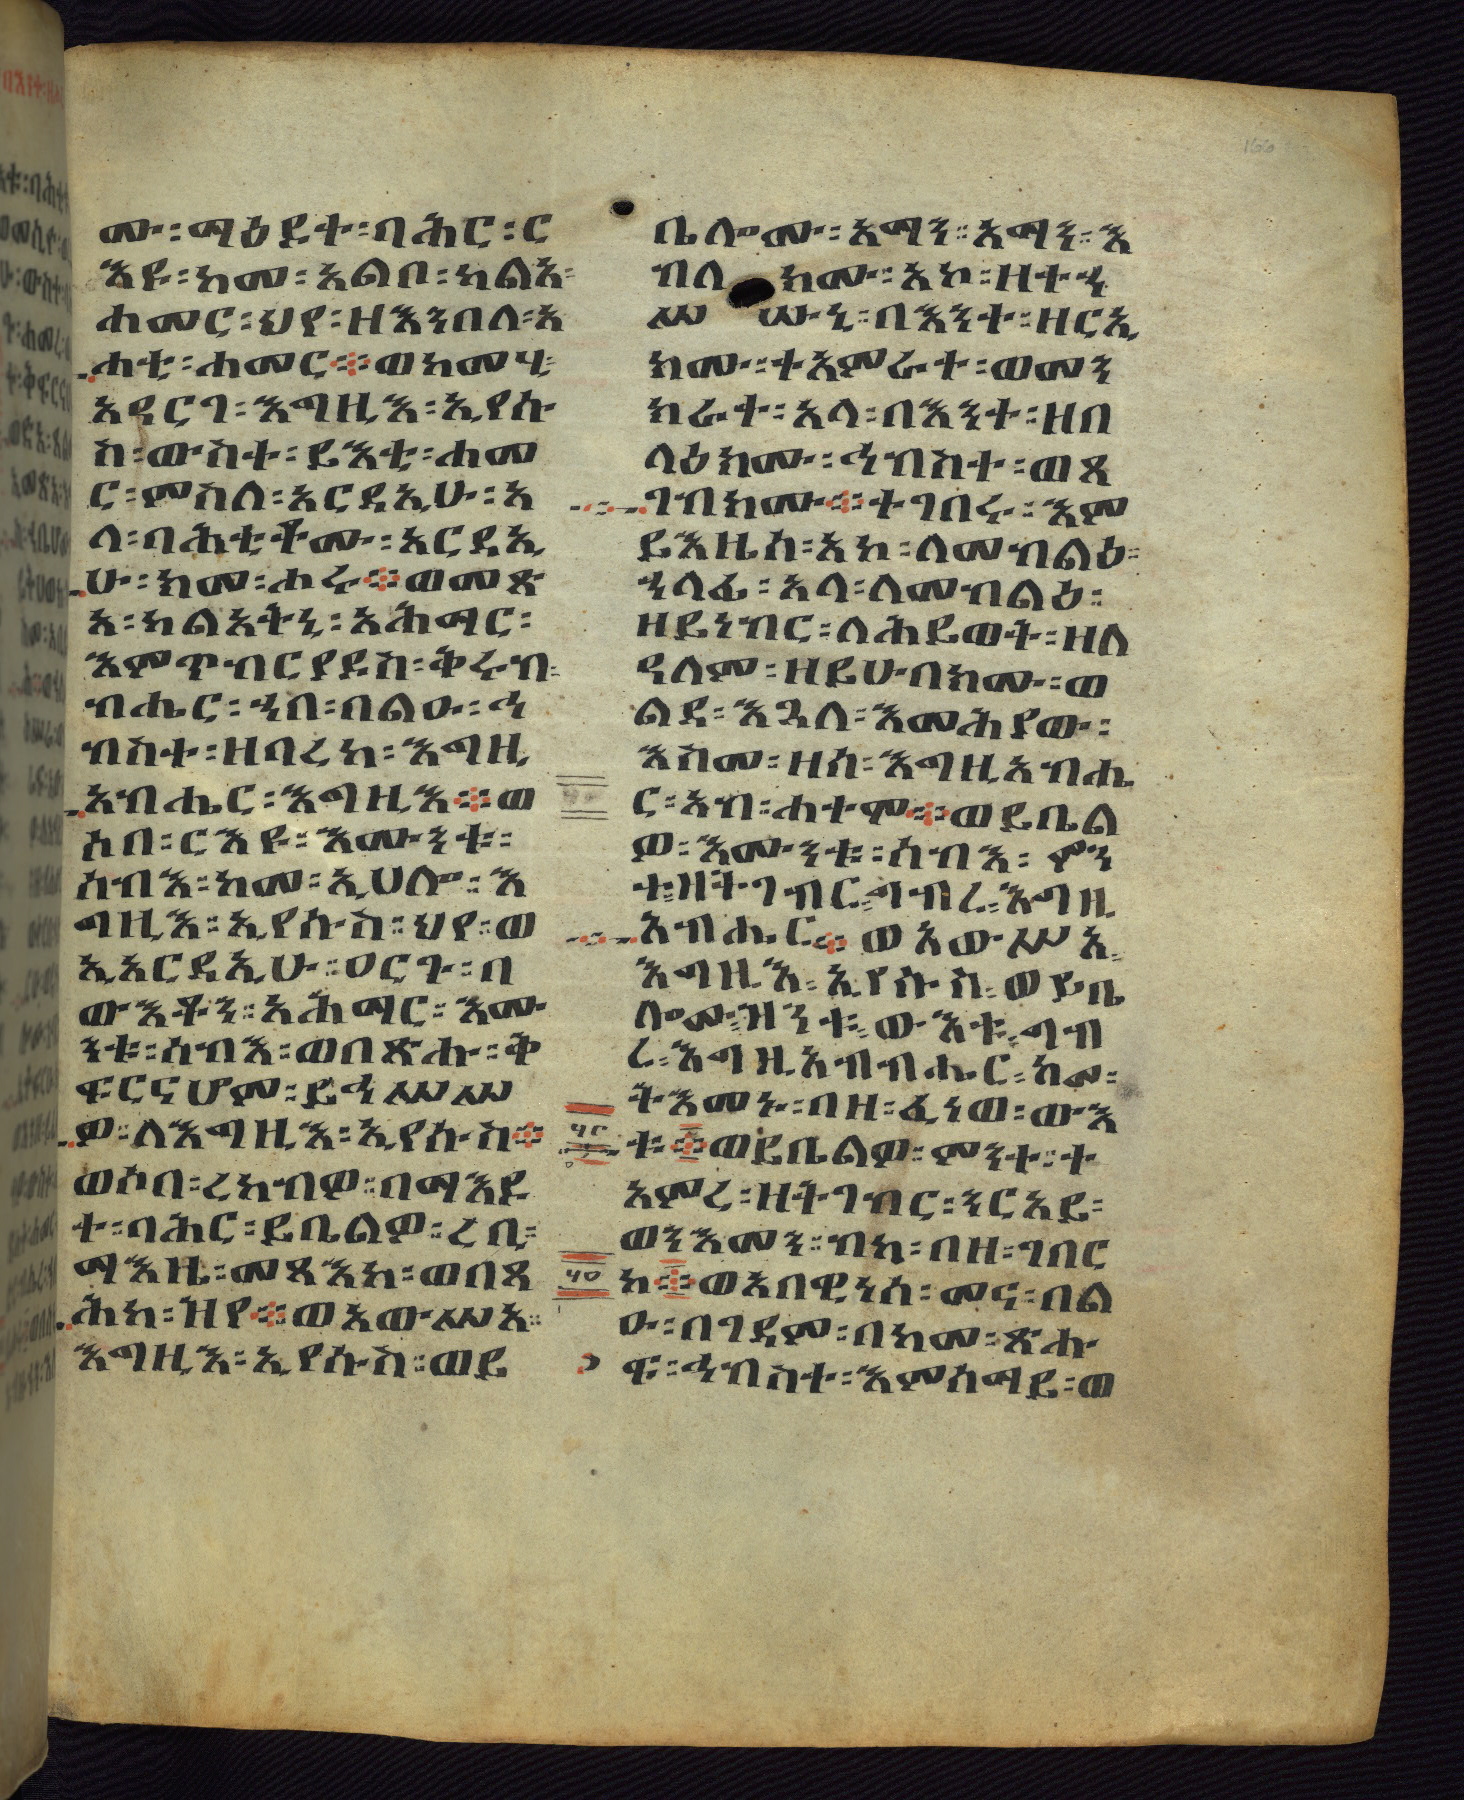 ሙ፡ማዕደተ፡ባሕር፡ር
እዩ፡ከመ፡አልቦ፡ካልእ፡
ሐመር፡ህየ፡ዘእንበለ፡አ
ሐቲ፡ሐመር፨ወከመሂ፡
አዳርገ፡እግዚእ፡ኢየሱ
ስ፡ውስተ፡ይእቲ፡ሐመ
ር፡ምስለ፡አርዳኢሁ፡አ
ላ፡ባሕቲቶሙ፡አርዳኢ
ሁ፡ከመ፡ሐሩ፨ወመጽ
አ፡ካልኣትኒ፡አሕማር፡
እምጥብርያዶስ፡ቅሩብ፡
ብሔር፡ኀበ፡በልዑ፡ኅ
ብስተ፡ዘባረከ፡እግዚ
አብሔር፡እግዚእ፨ወ
ሶበ፡ርእዩ፡እሙንቱ፡
ሰብእ፡ከመ፡ኢሀሎ፡እ
ግዚእ፡ኢየሱስ፡ህየ፡ወ
ኢአርዳኢሁ፡ዐርጉ፡በ
ውእቶን፡አሕማር፡እሙ
ንቱ፡ሰብእ፡ወበጽሑ፡ቅ
ፍርናሆም፡ይኅሥሥ
ዎ፡ለእግዚእ፡ኢየሱስ፨
ወሶበ፡ረከብዎ፡በማእደ
ተ፡ባሕር፡ይቤልዎ፡ረቢ፡
ማእዜ፡መጻእከ፡ወበጻ
ሕከ፡ዝየ፨ወአውሥአ፡
እግዚእ፡ኢየሱስ፡ወይ
ቤሎሙ፡አማን፡አማን፡እ
ብለክሙ፡አኮ፡ዘተኀ
ሥሡኒ፡በእንተ፡ዘርኢ
ክሙ፡ተአምራተ፡ወመን
ክራተ፡አላ፡በእንተ፡ዘበ
ላዕክሙ፡ኅብስተ፡ወጸ
ገብክሙ፨ተገበሩ፡እም
ይእዜሰ፡አኮ፡ለመብልዕ፡
ኀላፊ፡አላ፡ለመብልዕ፡
ዘይነብር፡ለሕይወት፡ዘለ
ዓለም፡ዘይሁብክሙ፡ወ
ልደ፡እጓለ፡እመሕያው፡
እስመ፡ዘሰ፡እግዚአብሔ
ር፡አብ፡ሐተሞ፨ወይቤል
ዎ፡እሙንቱ፡ሰብእ፡ምን
ተ፡ዘትገብር፡ግብረ፡እግዚ
አብሔር፨ወአውሥአ፡
እግዚእ፡ኢየሱስ፡ወይቤ
ሎሙ፡ዝንቱ፡ውእቱ፡ግብ
ረ፡እግዚአብብሔር፡ከመ፡
ትእመኑ፡በዘ፡ፈነወ፡ውእ
ቱ፨ወይቤልዎ፡ምንተ፡ተ
አምረ፡ዘትገብር፡ንርአይ፡
ወንእመን፡ብከ፡በዘ፡ገበር
ከ፨ወአበዊነሰ፡መና፡በል
ዑ፡በገዳም፡በከመ፡ጽሑ
ፍ፡ኅብስተ፡እምሰማይ፡ወ
166